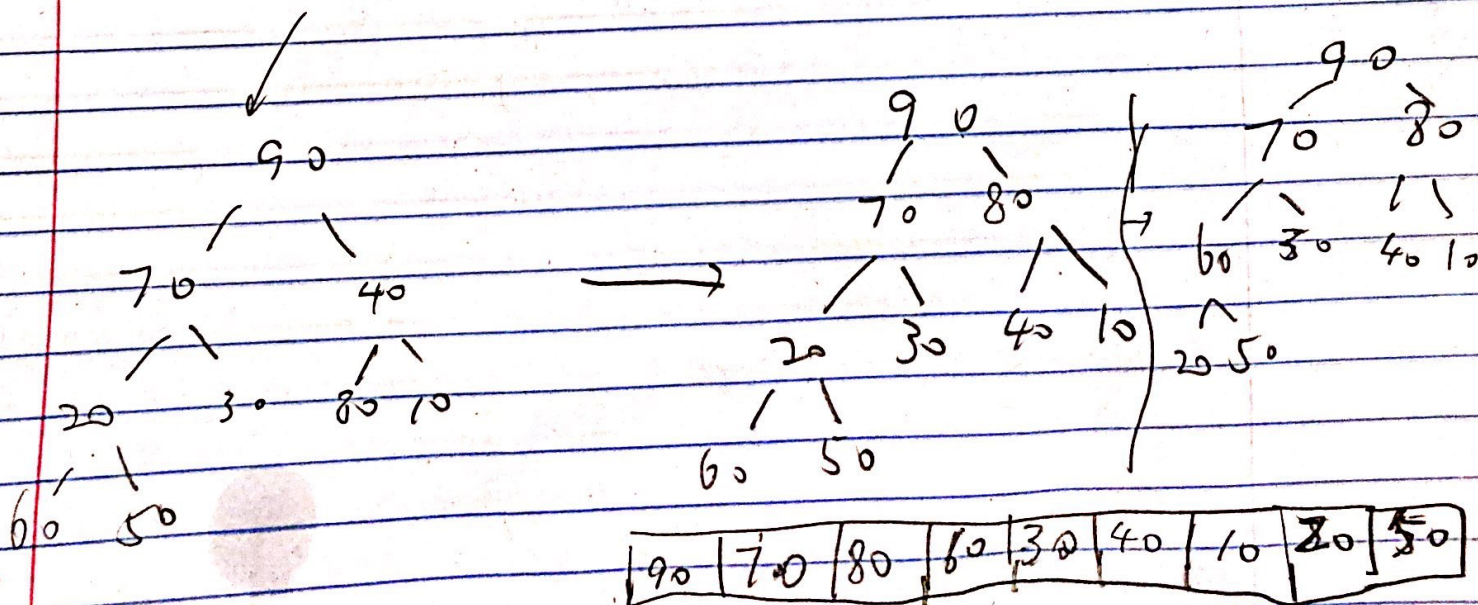 90
70 40
20 30 80 10
60 50
90
70 80
20 30 40 10
60 50
90
70 80
60 30 40 10
20 50
90 70 80 60 30 40 10 20 50